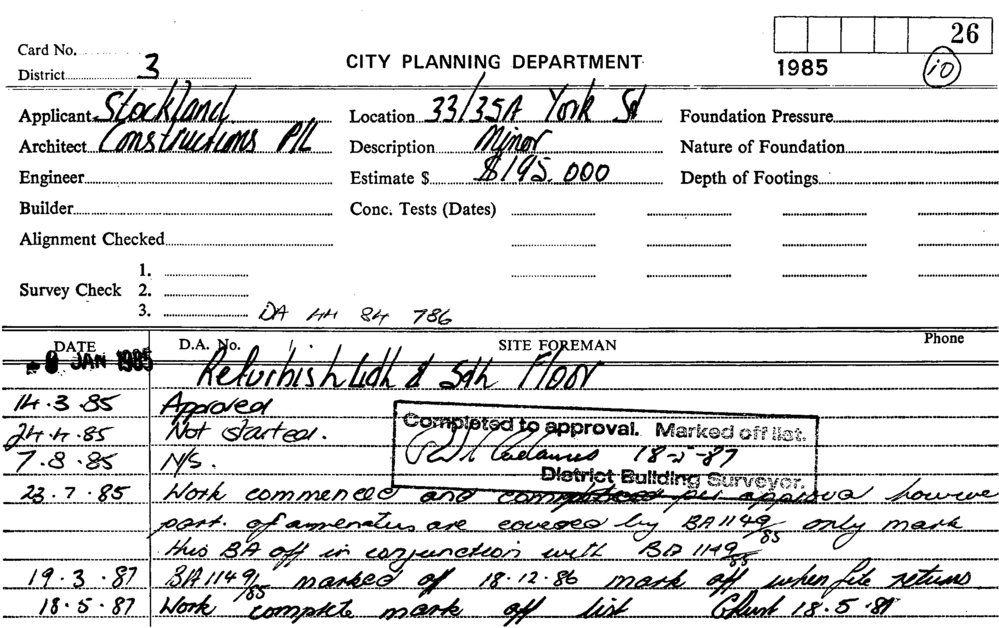 26
Card No.
CITY PLANNING DEPARTMENT
1985
10
District 3
Applicant Stockland
Location 33/35A York St
Foundation Pressure
Architect Constructions P/L
Description Minor
Nature of Foundation
Engineer
Estimate $ $195.000
Depth of Footings
Builder
Conc. Tests (Dates)
Alignment Checked
1.
Survey Check 2.
3. DA 44 84 786
DATE D.A. No. SITE FOREMAN Phone
JAN 1985 Refurbish 4th & 5th Floor
14.3.85 Approved
24.4.85 Not started.
7.8.85 N/S.
Completed to approval. Marked off list.
18-5-87
District Building Surveyor.
23.7.85 Work commenced and per approval howeve
part. of are covered by BA 1149/85 only mark
this BA off in conjunction with BA 1149/85
19.3.87 BA 1149/85 marked off 18.12.86 mark off when file returns
18.5.87 Work complete mark off list 18.5.87